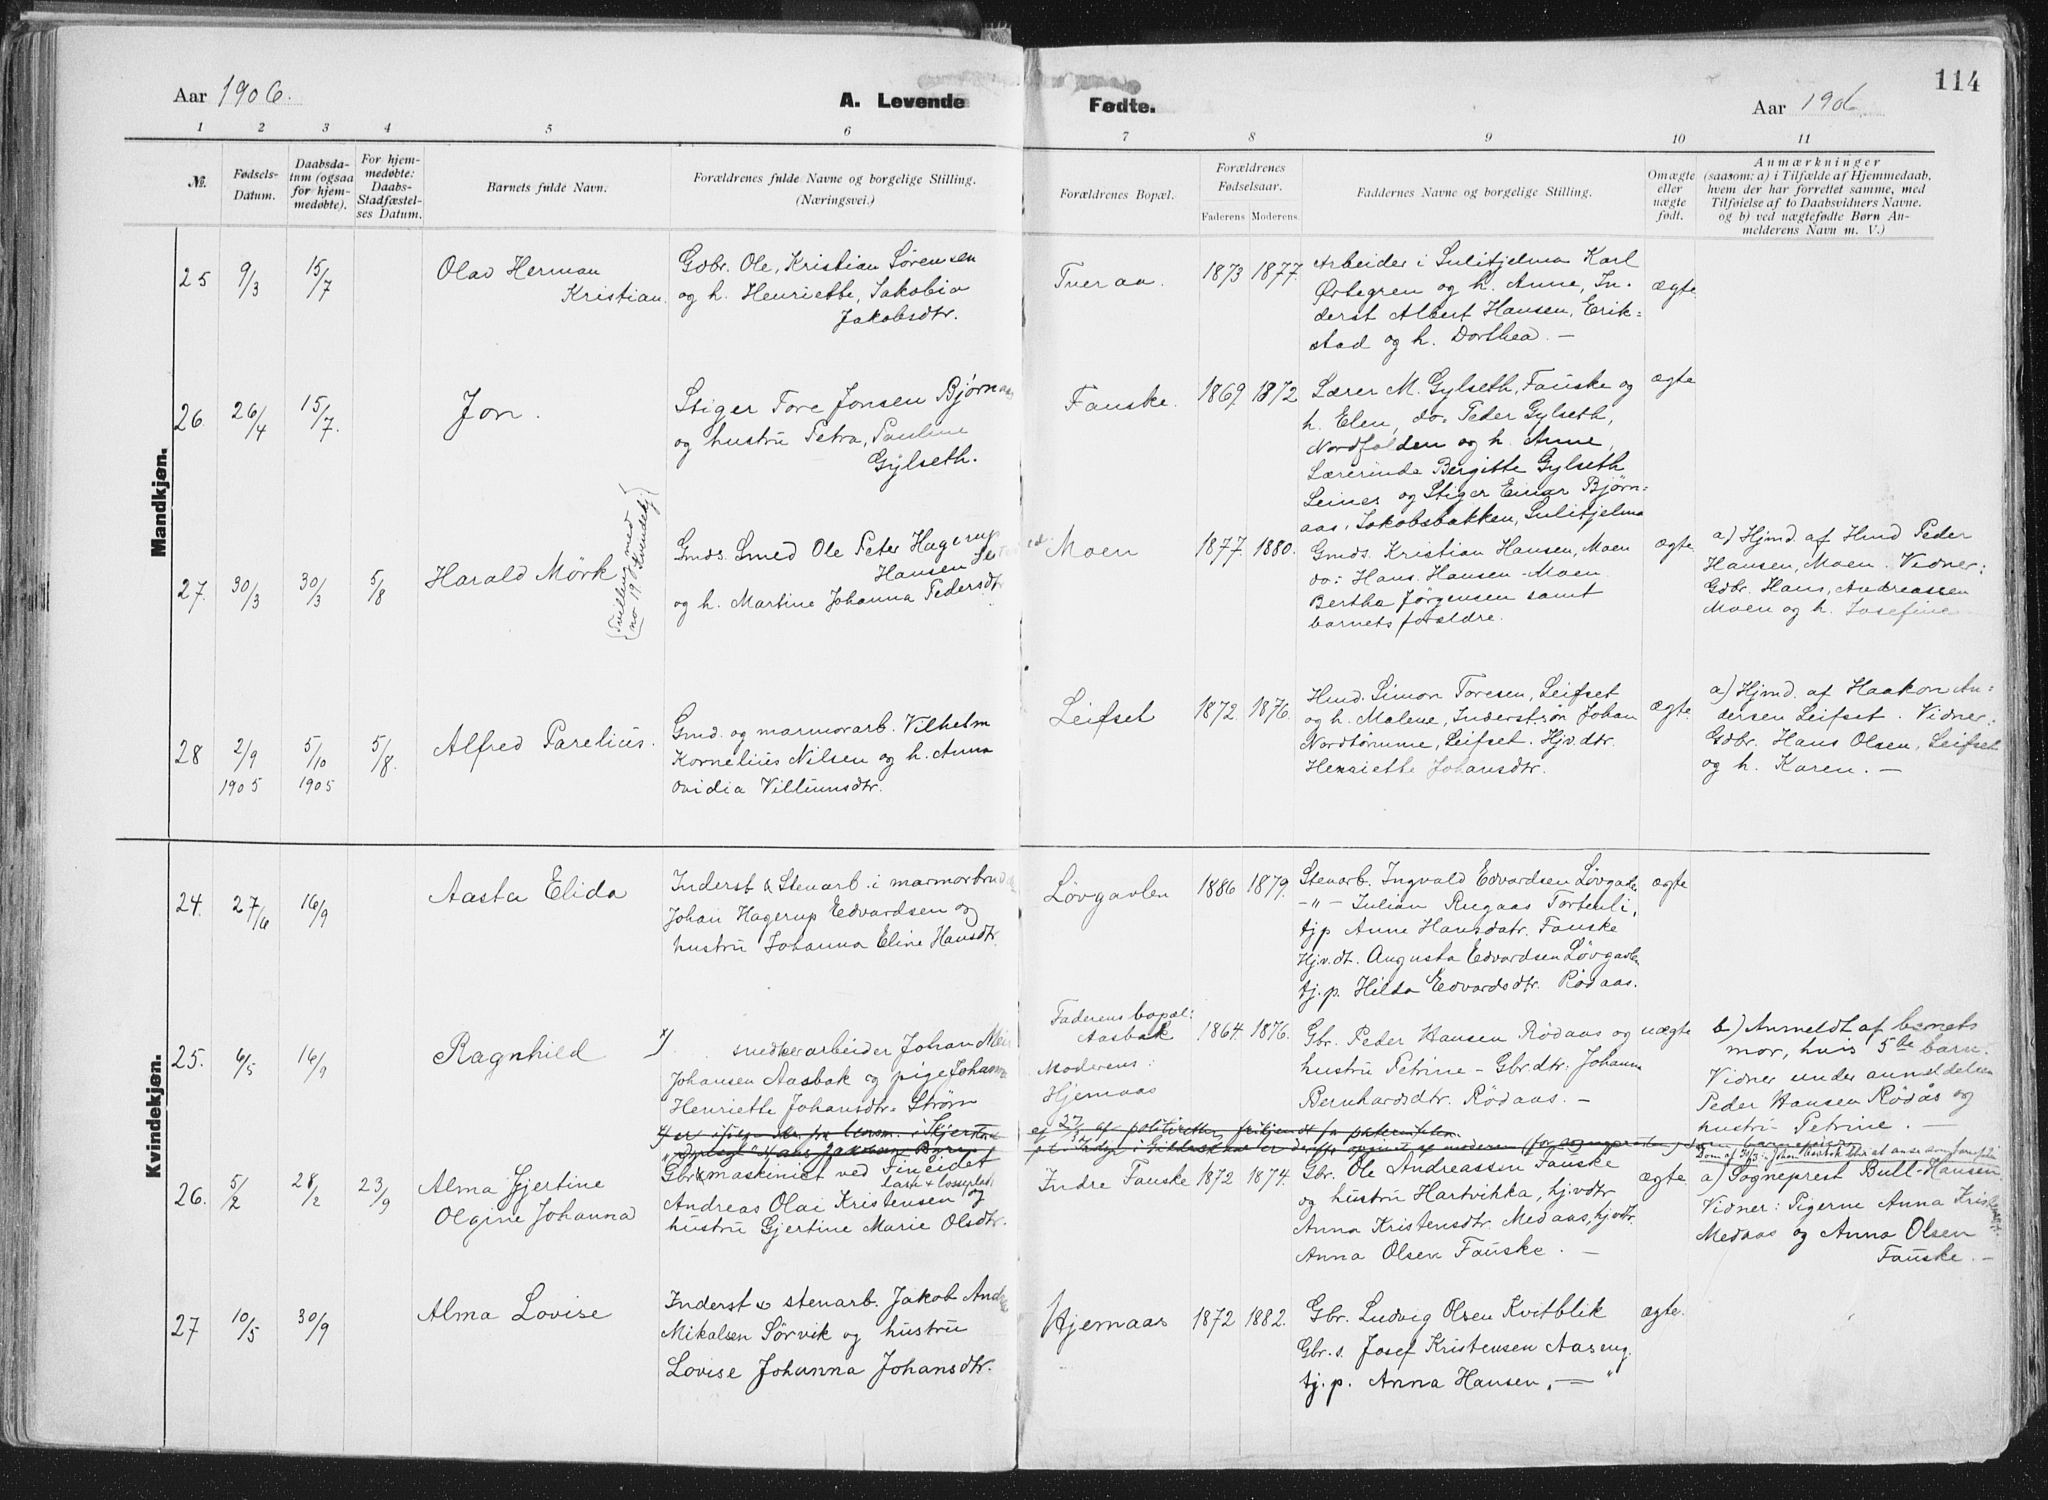 114
Aar 1906.
A. Levende Fødte.
Aar 1906
1 2 3 4 5 6 7 8 9 10 11
№.
Fødsels-
Datum.
Daabsda-
tum (ogsaa
for hjem-
medøbte).
For hjem-
medøbte:
Daabs-
Stadfæstel-
ses Datum.
Barnets fulde Navn.
Forældrenes fulde Navne og borgelige Stilling.
(Næringsvei.)
Forældrenes Bopæl.
Forældrenes
Fødselsaar.
Faderens Moderens.
Faddernes Navne og borgelige Stilling.
Omægte
eller
uægte
født.
Anmærkninger
(saasom: a) i Tilfælde af Hjemmedaab,
hvem der har forrettet samme, med
Tilføielse af to Daabsvidners Navne.
og b) ved uægtefødte Børn An-
melderens Navn m. V.)
Mandkjøn.
25 9/3 15/7
Olav Herman
Kristian
Gdbr. Ole, Kristian Sørensen
og h. Henriette, Jakobia
Jakobsdtr.
Tveraa.
1873 1877.
Arbeider i Sulitjelma Karl
Ørtegren og h. Anne, In-
derst Albert Hansen, Erik-
stad og h. Dorthea. —
ægte
26 26/4 15/7.
Jon.
Stiger Tore Jonsen Bjørnaas
og hustru Petra, Pauline
Gylseth.
Fauske.
1869. 1872
Lærer M. Gylseth, Fauske og
h. Elen, do: Peder Gylseth,
Nordfolden og h. Anne,
Lærerinde Bergitte Gylseth
Leines og Stiger Einar Bjørn-
aas, Jakobsbakken, Sulitjelma
ægte
27. 30/3 30/3 5/8
Harald Mörk
(Tvilling med
no 19 Kvindekj)
Gmds. Smed Ole Peter Hagerup
Hansen
og h. Martine Johanna Pedersdtr
Moen
1877. 1880.
Gmds. Kristian Hansen, Moen
do: Hans Hansen - Moen
Bertha Jørgensen samt
barnets forældre.
ægte
a) Hjmd. af Hmd Peder
Hansen, Moen. Vidner:
Gdbr. Hans, Andreassen
Moen og h. Josefine
28 2/9 1905 5/10 1905 5/8.
Alfred Parelius.
Gmd. og marmorarb. Vilhelm
Kornelius Nilsen og h. Anna
Ovidia Villumsdtr.
Leifset
1872. 1876.
Hmd. Simon Toresen, Leifset
og h. Malene, Inderst:søn Johan
Nordtømme, Leifset. Hjv.dtr.
Henriette Johansdtr.
ægte.
a) Hjmd. af Haakon An-
dersen Leifset. Vidner:
Gdbr. Hans Olsen, Leifset
og h. Karen. —
Kvindekjøn.
24. 27/6 16/9
Aasta Elida
Inderst & Stenarb. i marmorbrud
Johan Hagerup Edvardsen og
hustru Johanna Eline Hansdtr.
Løvgavlen
1886 1879.
Stenarb. Ingvald Edvardsen Løvgavle
-"- Julian Rugaas Tortenli,
tjp Anne Hansdatr. Fauske
Hjv.dt. Augusta Edvardsen Løvgavlen
tj.p. Hilda Edvardsdtr. Rödaas.
ægte
25. 6/5 16/9
Ragnhild
x) snedkerarbeider Johan
Johansen Aasbak og pige Johanna
Henriette Johansdtr. Strøm
Faderens bopæl:
Aasbak
Moderens:
Hjemaas
1864. 1876.
Gbr. Peder Hansen Rødaas og
hustru Petrine - Gbrdtr: Johanna
Bernhardsdtr. Rødaas. —
uægte
b) Anmeldt af barnets
mor, hvis 5te barn.
Vidner under anmeldelsen
Peder Hansen Rödås og
hustru Petrine. —
26. 5/2 28/2 23/9
Alma Gjertine
Olgine Johanna
Gbr & maskinist ved Fineidet
Andreas Olai Kristensen og
hustru Gjertine Marie Olsdtr.
Indre Fauske
1872 1874.
Gbr. Ole Andreassen Fauske
og hustru Hartvikka, hjvdtr
Anna Kristensdtr. Medaas, hjvdtr.
Anna Olsen Fauske. —
ægte
a) Sogneprest Bull-Hansen
Vidner: Pigerne Anna
Medaas og Anna Olsen
Fauske. —
27 10/5 30/9
Alma Lovise
Inderst & stenarb. Jakob
Mikalsen Sørvik og hustru
Lovise Johanna Johansdtr.
Hjemaas
1872 1882.
Gbr. Ludvig Olsen Kvitblik
Gbr. s. Josef Kristensen Aaseng.
tj.p. Anna Hansen, — "
ægte.